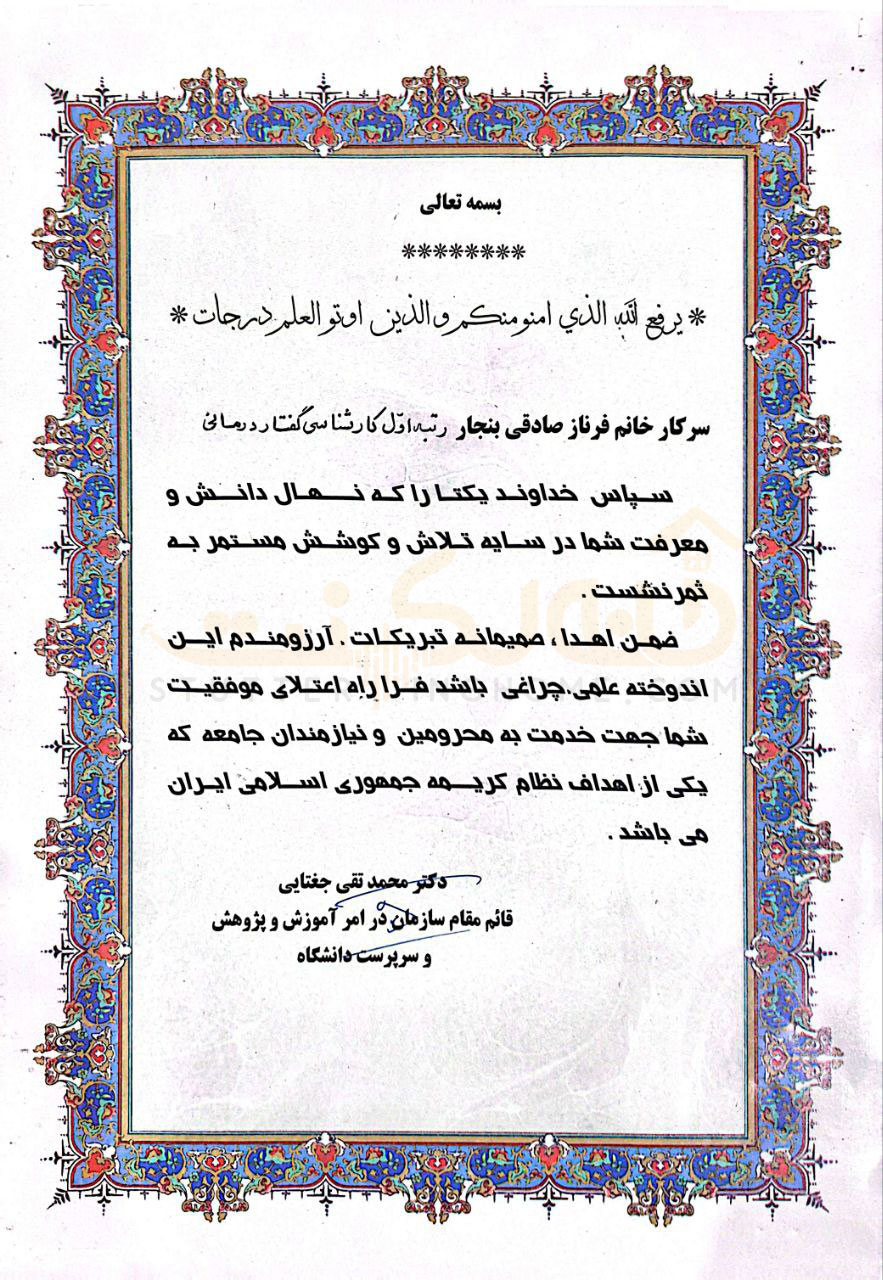 بسمه تعالی
********
* يرفع الله الذي امنو منكم والذين اوتو العلم درجات *
سرکار خانم فرناز صادقی بنجار رتبه اوّل کارشناسی گفتار درمانی
سپاس خداوند یکتا را که نهال دانش و
معرفت شما در سایه تلاش و کوشش مستمر به
ثمر نشست .
ضمن اهدا ، صمیمانه تبریکات . آرزومندم این
اندوخته علمی،چراغی باشد فرا راه اعتلای موفقیت
شما جهت خدمت به محرومین و نیازمندان جامعه که
یکی از اهداف نظام کریمه جمهوری اسلامی ایران
می باشد .
دکتر محمد تقی جغتایی
قائم مقام سازمان در امر آموزش و پژوهش
و سرپرست دانشگاه